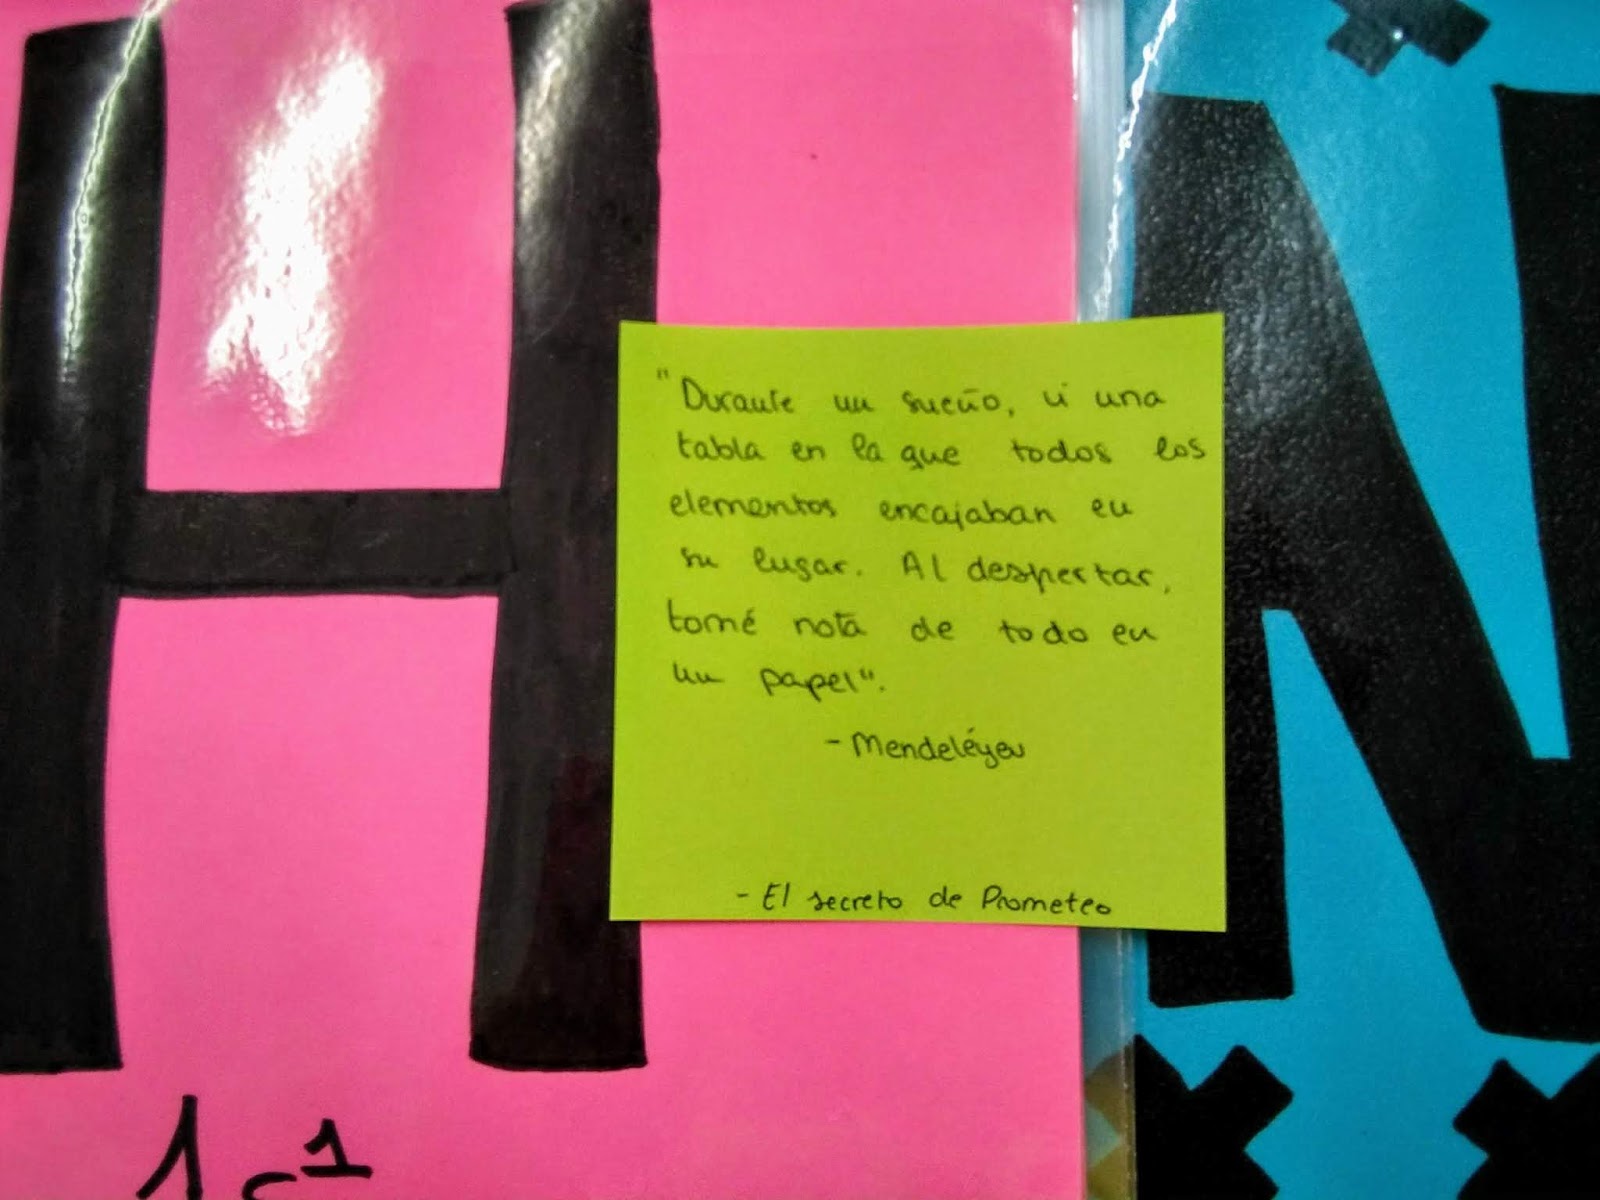 H
N
"Durante un sueño, vi una
tabla en la que todos los
elementos encajaban en
su lugar. Al despertar,
tomé nota de todo en
un papel".
- Mendeléyev
- El secreto de Prometeo
1s¹